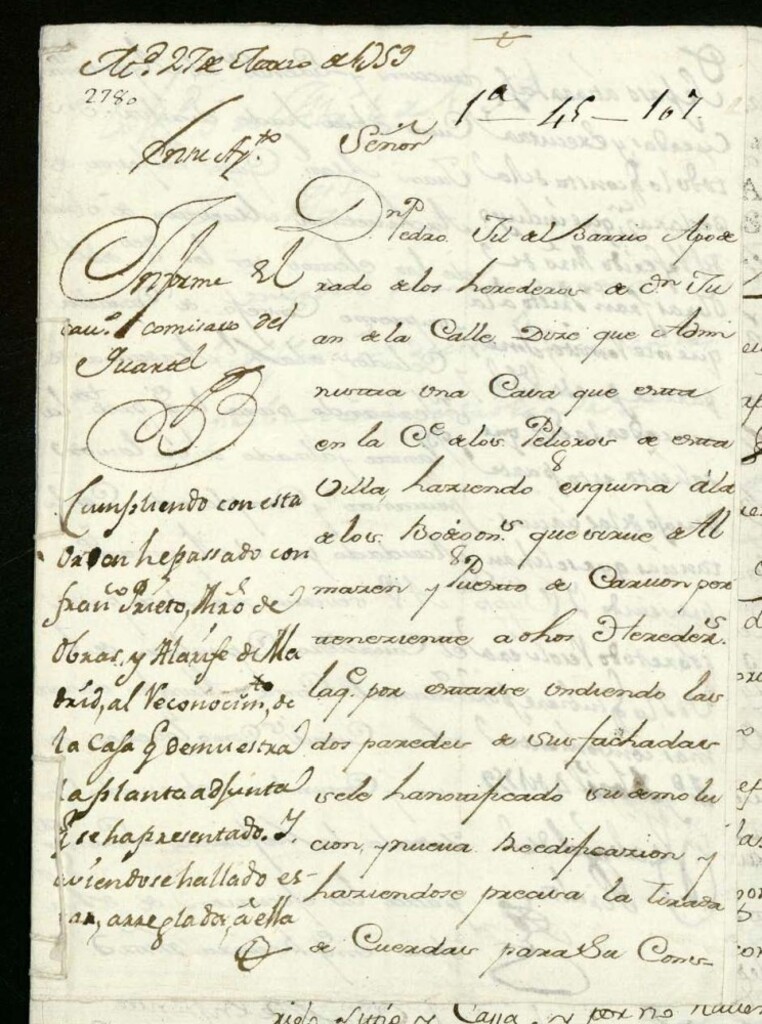 Md. 27 de Enero de 1759
2780
1ª - 45 - 107.
En su Ay.to
Señor
Informe el
cavº. comisario del
Quartel
Cumpliendo con esta
orden he passado con
Franco Prieto, Mro de
obras, y Alarife de Ma
drid, al Reconocimto, de
la Casa q demuestra
la planta adjunta
q se ha presentado. Y
aviendose hallado es-
tar, arreglada, â ella
Dn Pedro Gil del Barrio Apode
rado de los herederos de Dn Ju
an de la Calle. Dize que Admi
nistra una Casa que esta
en la Ce de los Peligros de esta
Villa, haziendo esquina á la
de los Bodegons. que sirve de Al
mazen y Puesto de Carvon per
teneziente a dhos Hereders.
la qe. por estarse undiendo las
dos paredes de sus fachadas
se le ha notificado su demolu
cion, y nueva Reedificazion y
haziendose precisa la tirada
de Cuerdas para su Cons-
Sitio y Cassa, y por no haver